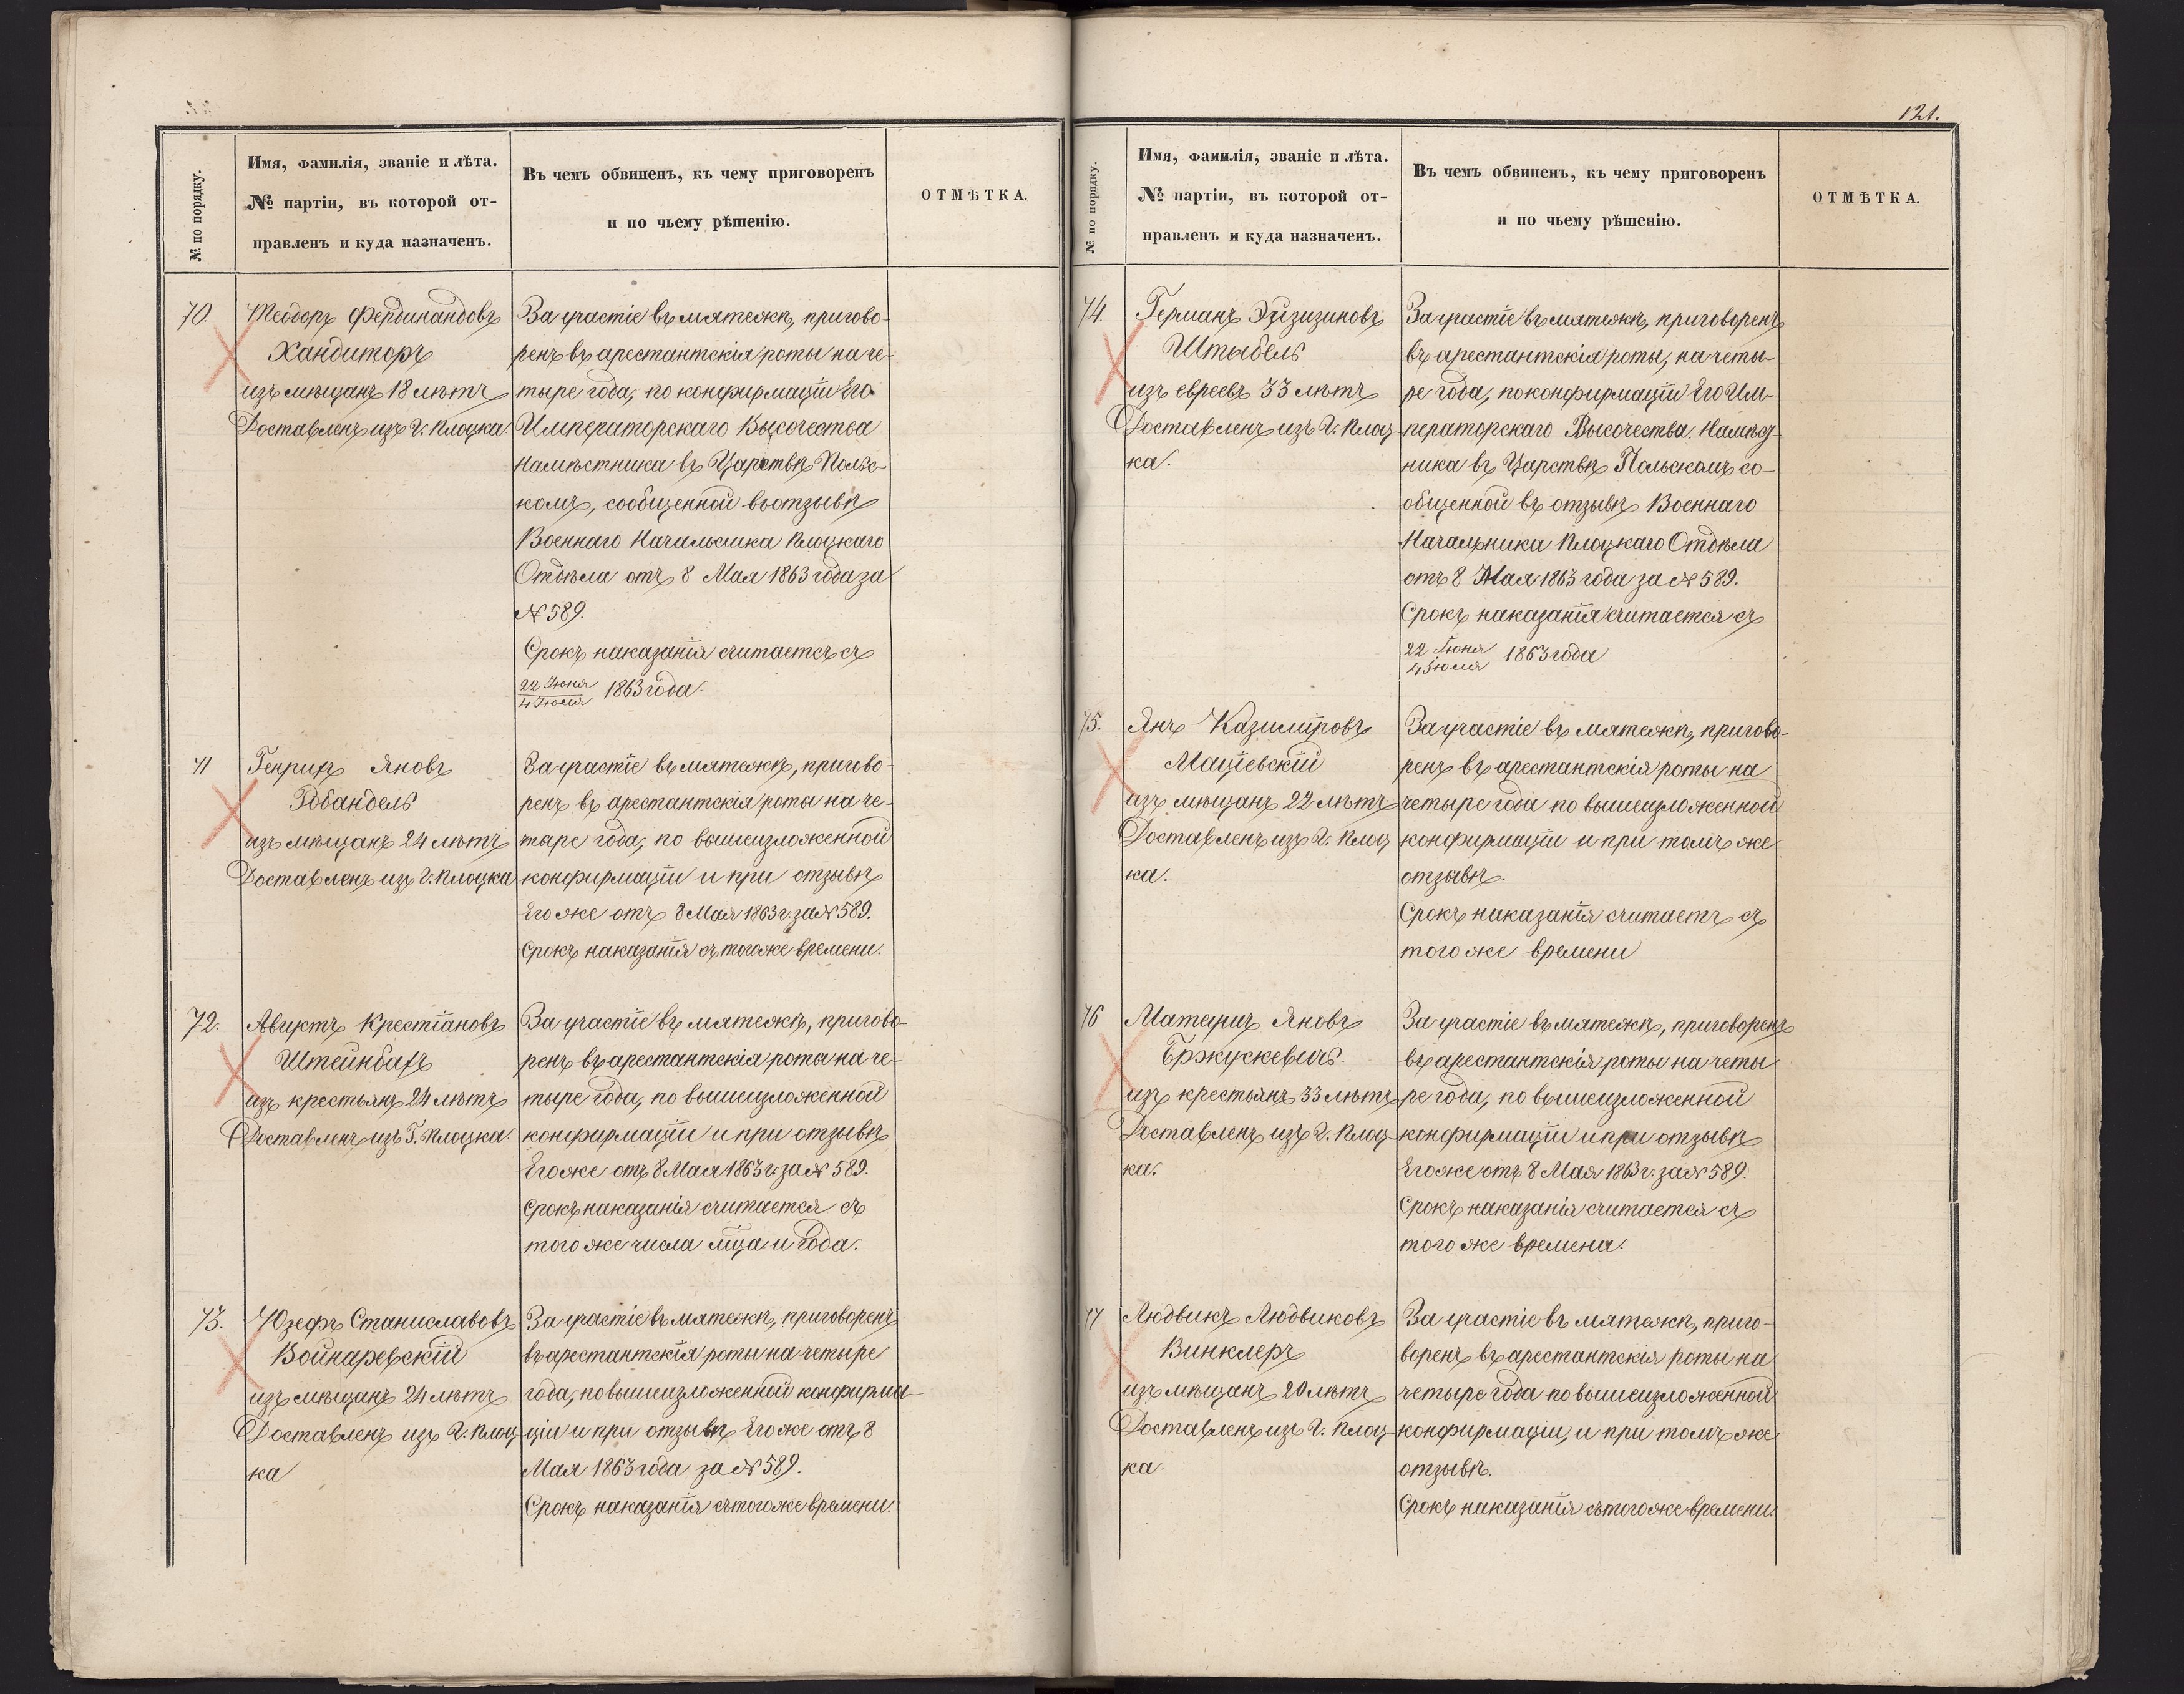 № по порядку.
Имя, фамилія, званіе и лѣта.
№ партіи, въ которой от-
правленъ и куда назначенъ.
Въ чемъ обвиненъ, къ чему приговоренъ
и по чьему рѣшенію.
ОТМѢТКА.
70.
Теодоръ Фердинандовъ
Хандиторъ
изъ мѣщанъ 18 лѣтъ
Доставленъ изъ г. Плоцка
За участіе въ мятежѣ, пригово-
ренъ въ арестантскія роты на че-
тыре года, по конфирмаціи Его
Императорскаго Высочества
Намѣстника въ Царствѣ Польс-
комъ, сообщенной въ отзывѣ
Военнаго Начальника Плоцкаго
Отдѣла отъ 8 Мая 1863 года за
№ 589.
Срокъ наказанія считается съ
22 Іюня
4 Іюля 1863 года.
71
Генрихъ Яновъ
изъ мѣщанъ 24 лѣтъ
Доставленъ изъ г. Плоцка
За участіе въ мятежѣ, пригово-
ренъ въ арестантскія роты на че-
тыре года, по вышеизложенной
конфирмаціи и при отзывѣ
Его же отъ 8 Мая 1863 г. за № 589.
Срокъ наказанія съ того же времени.
72.
Августъ Крестіановъ
Штейнбахъ
изъ крестьянъ 24 лѣтъ
Доставленъ изъ Г. Плоцка.
За участіе въ мятежѣ, пригово-
ренъ въ арестантскія роты на че-
тыре года, по вышеизложенной
конфирмаціи и при отзывѣ
Его же отъ 8 Мая 1863 г. за № 589.
Срокъ наказанія считается съ
того же числа мца и года.
73.
Юзефъ Станиславовъ
Войнаревскій
изъ мѣщанъ 24 лѣтъ
Доставленъ изъ г. Плоц-
ка
За участіе въ мятежѣ, приговоренъ
въ арестантскія роты на четыре
года, по вышеизложенной конфирма-
ціи и при отзывѣ Его же отъ 8
Мая 1863 года за № 589.
Срокъ наказанія съ того же времени.
121.
№ по порядку.
Имя, фамилія, званіе и лѣта.
№ партіи, въ которой от-
правленъ и куда назначенъ.
Въ чемъ обвиненъ, къ чему приговоренъ
и по чьему рѣшенію.
ОТМѢТКА.
74.
Германъ
Штыбель
изъ евреевъ 33 лѣтъ
Доставленъ изъ г. Плоц-
ка.
За участіе въ мятежѣ, приговоренъ
въ арестантскія роты, на четы-
ре года, по конфирмаціи Его Им-
ператорскаго Высочества. Намѣст-
ника въ Царствѣ Польскомъ со-
общенной въ отзывѣ Военнаго
Начальника Плоцкаго Отдѣла
отъ 8 Мая 1863 года за № 589.
Срокъ наказанія считается съ
22 Іюня
4 Іюля 1863 года
75.
Янъ Казиміровъ
Маціевскій
изъ мѣщанъ 22 лѣтъ
Доставленъ изъ г. Плоц
ка.
За участіе въ мятежѣ, пригово-
ренъ въ арестантскія роты на
четыре года по вышеизложенной
конфирмаціи и при томъ же
отзывѣ.
Срокъ наказанія считаетъ съ
того же времени
76
Матеушъ Яновъ
Бржускевичъ.
изъ крестьянъ 33 лѣтъ
Доставленъ изъ г. Плоц-
ка.
За участіе въ мятежѣ, приговоренъ
въ арестантскія роты на четы
ре года, по вышеизложенной
конфирмаціи и при отзывѣ
Его же отъ 8 Мая 1863 г. за № 589.
Срокъ наказанія считается съ
того же времени.
77
Людвикъ Людвиковъ
Винклеръ
изъ мѣщанъ 20 лѣтъ
Доставленъ изъ г. Плоц-
ка.
За участіе въ мятежѣ, приго-
воренъ въ арестантскія роты на
четыре года по вышеизложенной
конфирмаціи, и при томъ же
отзывѣ.
Срокъ наказанія съ того же времени.